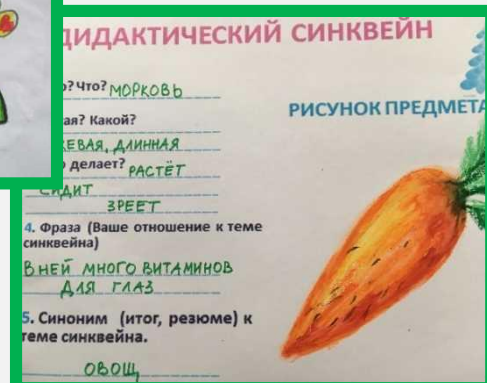 ДИДАКТИЧЕСКИЙ СИНКВЕЙН
? Что? МОРКОВЬ
РИСУНОК ПРЕДМЕТА
? Какой?
ДЛИННАЯ
делает? РАСТЁТ
СИДИТ
ЗРЕЕТ
4. Фраза (Ваше отношение к теме
синквейна)
В НЕЙ МНОГО ВИТАМИНОВ
ДЛЯ ГЛАЗ
5. Синоним (итог, резюме) к
теме синквейна.
ОВОЩ